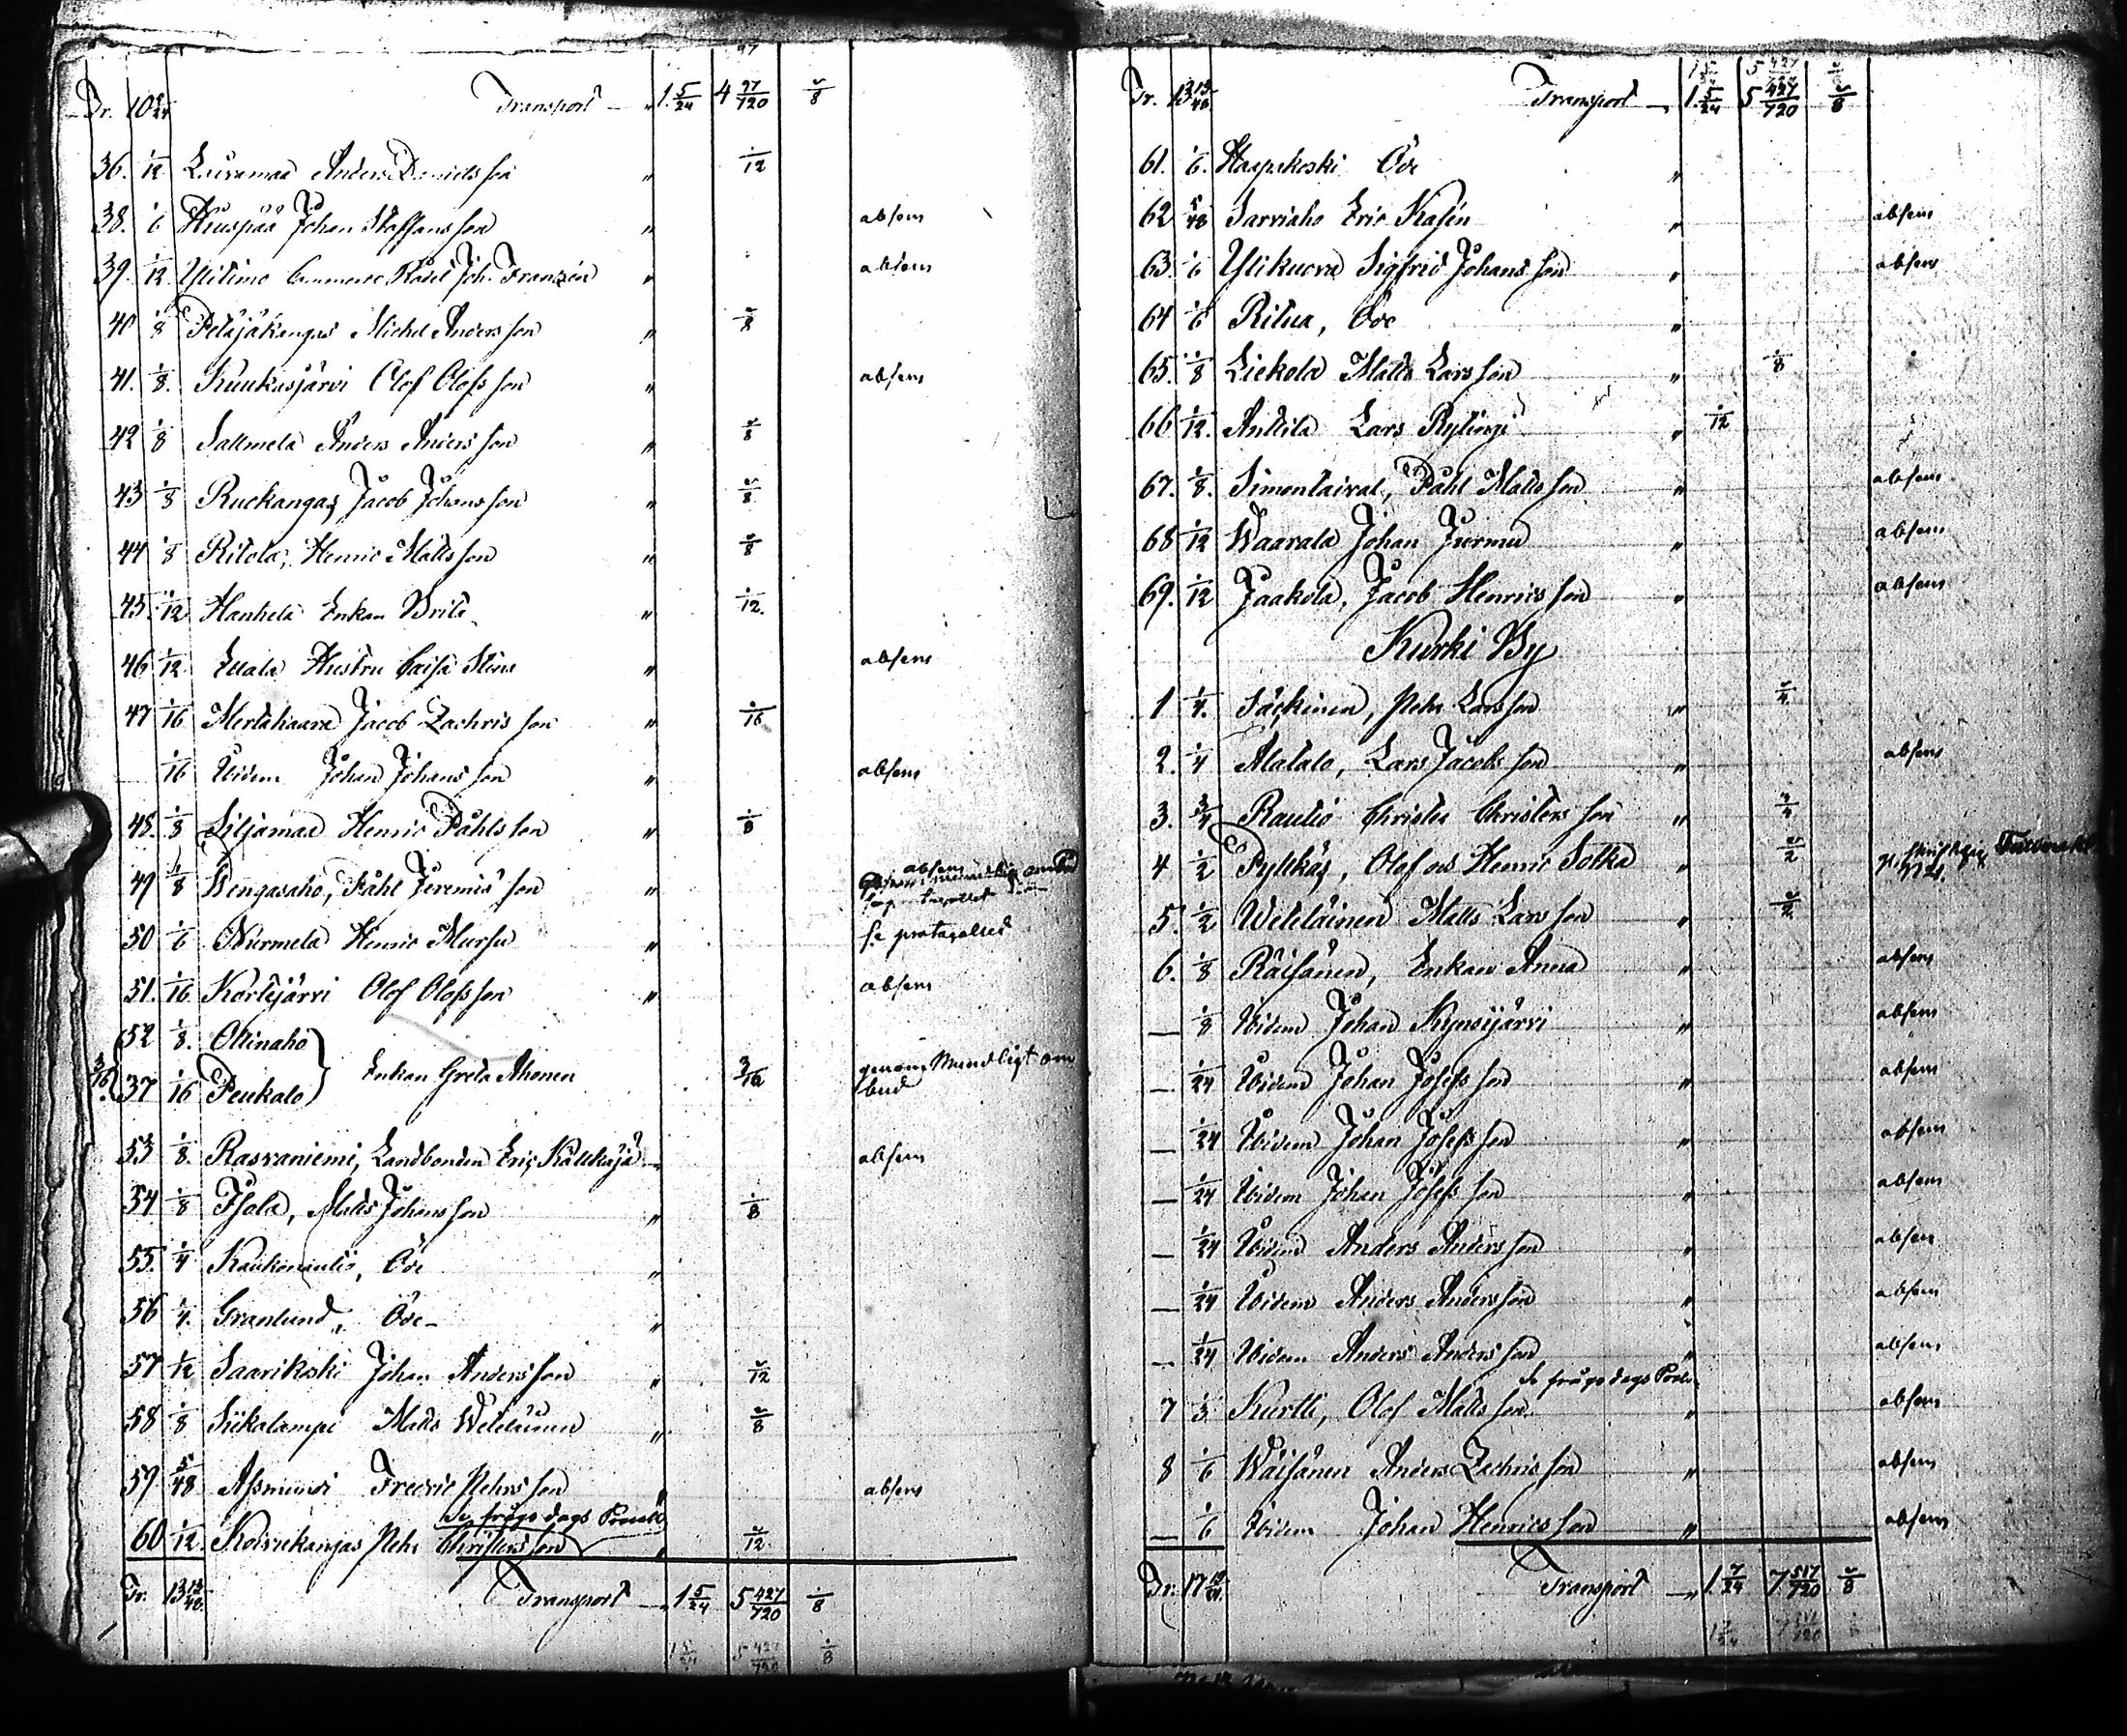 Tr. 10 9/24 Transport — „ 1 5/24 4 97/720 1/8
36. 1/12 Anders Danielsson „ 1/12
38. 1/6 Johan Staffansson „ absens
39. 1/12 Ylitimo Commerce Rådet Joh. Franzén „ absens
40 1/8 Petäjäkangas Michel Andersson „ 1/8
41. 1/8. Kuukasjärvi Olof Olofsson „ absens
42 1/8 Sallmela Anders Andersson „ 1/8
43 1/8 Ruckangas Jacob Johansson „ 1/8
44 1/8 Ritola, Henric Mattsson „ 1/8
45. 1/12 Hanhela Enkan Brita „ 1/12.
46 1/12 Hustru Caisa Stina „ absens
47 1/16 Mertahaara Jacob Zachrisson „ 1/16
1/16 Ibidem Johan Johansson „ absens
48. 1/8 Siljamaa Henric Påhlsson „ 1/8
49 1/8 Wengasaho, Påhl Jeremiæson „ absens
50 1/6 Nurmela Henric Mursu „ se protocollet
51. 1/16 Kortejärvi Olof Olofsson „ absens
52 1/8. Ollinaho
3/16 37 1/16 Peukalo Enkan Greta Ahonen 3/16 genom Mundligt ombud
53 1/8. Rasvaniemi, Landbonden Eric absens
54 1/8 Isola, Matts Johansson „ 1/8
55. 1/4 Kaukonautio, Öde „
56 1/4. Granlund, Öde „
57 1/12 Saarikoski Johan Andersson „ 1/12
58 1/8 Siikalampi Matts Weteläinen „ 1/8
59 5/48 Assmundi Fredric Pehrsson „ absens
Se frågodags
60 1/12. Koivukangas Pehr Christersson „ 1/12
Tr. 13 13/48. Transport — „ 1 5/24 5 427/720 1/8
1 5/24 5 427/720 1/8
Tr. 13 13/48 Transport — „ 1 5/24 5 427/720 1/8
61. 1/6. Haapakoski Öde „
62 5/48 Sarriaho Eric Kasén „ absens
63. 1/6 Ylikuova Sigfrid Johansson „ absens
64 1/6 Ritua, Öde „
65. 1/8 Liekola Matts Larsson „ 1/8
66 1/12. Anttila Lars Rytingi „ 1/12
67. 1/8. Simontaival, Påhl Mattsson „ absens
68 1/12 Waarala Johan Jurmu „ absens
69. 1/12 Jaakola, Jacob Henricsson „ absens
Kurki By
1 1/4. Säckinen, Pehr Larsson „ 1/4
2. 1/4 Alatalo, Lars Jacobsson „ absens
3. 3/4 Rautio Christer Christersson „ 3/4
4 1/2 Pyttkäs, Olof och Henric Sotka „ 1/2
5. 1/2 Weteläinen Matts Larsson „ 1/2
6. 1/8 Räisänen, Enkan Anna „ absens
— 1/8 Ibidem Johan Kynsijärvi „ absens
— 1/24 Ibidem Johan Josefsson „ absens
— 1/24 Ibidem Johan Josefsson „ absens
— 1/24 Ibidem Johan Josefsson „ absens
— 1/24 Ibidem Anders Andersson „ absens
— 1/24 Ibidem Anders Andersson „ absens
— 1/24 Ibidem Anders Andersson „ absens
Se frågodags
7 1/3 Kurtti, Olof Mattsson „ absens
8 1/6 Wäisänen Anders Zachrisson „ absens
— 1/6 Ibidem Johan Henricsson „ absens
Tr. 17 19/24. Transport — „ 1 7/24 7 517/720 1/8
1 7/24